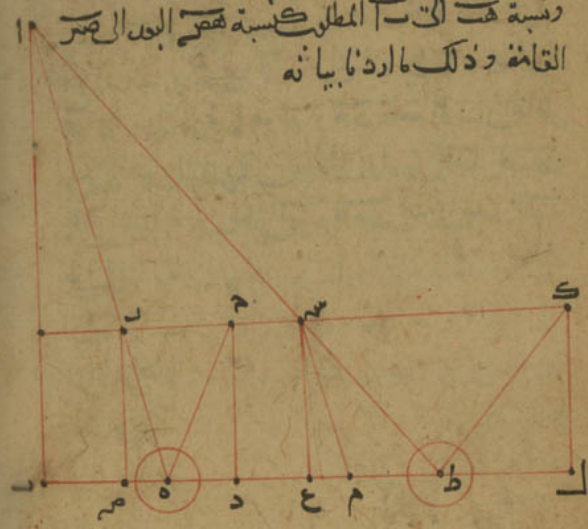 ونسبة هب الى ب ا المطلوب كنسبة هص البعد الى
القامة وذلك ما اردنا بيانه
ا
ح س ك
ص ه د ع م ط ل